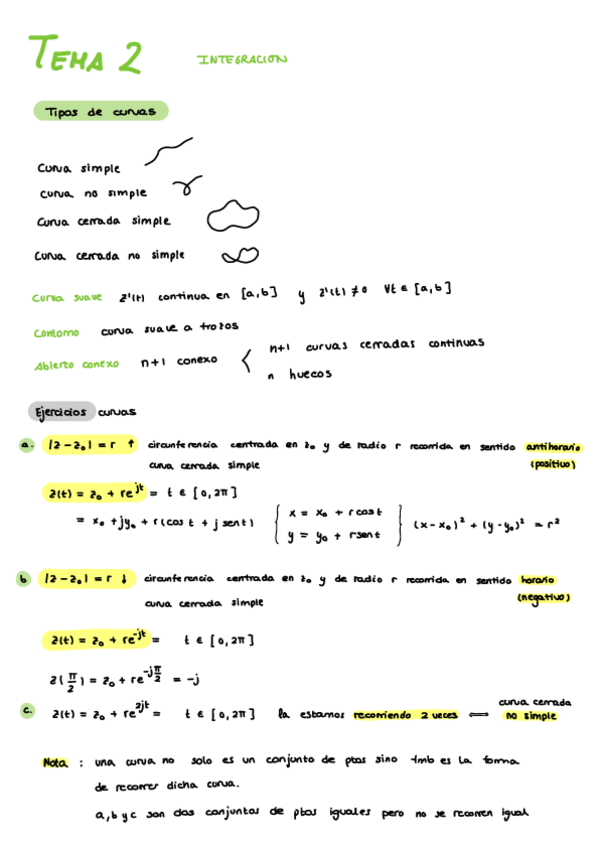 TEMA 2 INTEGRACION
Tipos de curvas
Curva simple
curva no simple
Curva cerrada simple
Curva cerrada no simple
Curva suave z'(t) continua en [a,b] y z'(t) ≠ 0 ∀t ∈ [a,b]
Contorno curva suave a trozos
Abierto conexo n+1 conexo < n+1 curvas cerradas continuas
n huecos
Ejercicios curvas
a. |z-z₀| = r ↑ circunferencia centrada en z₀ y de radio r recorrida en sentido antihorario
curva cerrada simple (positivo)
z(t) = z₀ + re^{jt} = t ∈ [0,2π]
= x₀ + jy₀ + r(cos t + j sent) { x = x₀ + rcost
y = y₀ + rsent } (x-x₀)² + (y-y₀)² = r²
b |z-z₀| = r ↓ circunferencia centrada en z₀ y de radio r recorrida en sentido horario
curva cerrada simple (negativo)
z(t) = z₀ + re^{-jt} = t ∈ [0,2π]
z(π/2) = z₀ + re^{-jπ/2} = -j
c. z(t) = z₀ + re^{2jt} = t ∈ [0,2π] la estamos recorriendo 2 veces ⟺ curva cerrada
no simple
Nota : una curva no solo es un conjunto de ptos sino tmb es la forma
de recorrer dicha curva.
a,b y c son dos conjuntos de ptos iguales pero no se recorren igual